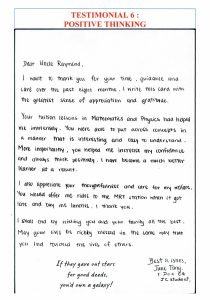 TESTIMONIAL 6 :
POSITIVE THINKING
Dear Uncle Raymond,
I want to thank you for your time, guidance and
care over the past eight months. I write this card with
the greatest sense of appreciation and gratitude.
Your tuition lessons in Mathematics and Physics had helped
me immensely. You were able to put across concepts in
a manner that is interesting and easy to understand.
More importantly, you helped me increase my confidence
and always think positively. I have become a much better
learner as a result.
I also appreciate your thoughtfulness and care for my welfare.
You would offer me rides to the MRT station when it got
late and buy me lunches. I thank you.
I shall end by wishing you and your family all the best.
May your lives be richly blessed in the same way that
you had touched the lives of others.
If they gave out stars
for good deeds,
you'd own a galaxy!
Best wishes,
Jane Tang
JC student